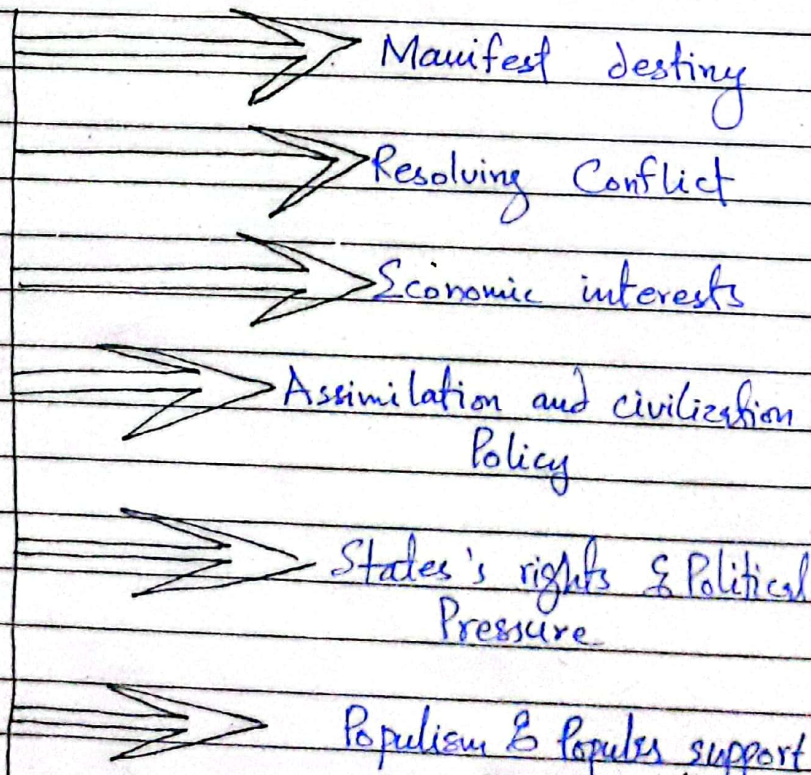 Manifest destiny
Resolving Conflict
Economic interests
Assimilation and civilization
Policy
States's rights & Political
Pressure
Populism & Populer support